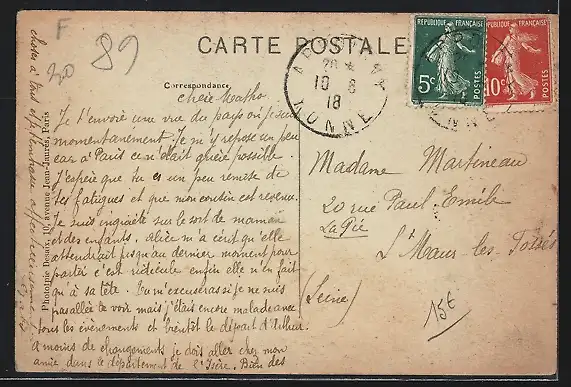 F
30
89
CARTE POSTALE
Correspondance
RÉPUBLIQUE FRANÇAISE
5c
POSTES
RÉPUBLIQUE FRANÇAISE
10c
POSTES
10 8
18
YONNE
Je t'envoie une vue du pays où je suis
momentanement. Je m'y repose un peu
car à Paris ce n'était guère possible.
J'espère que tu es un peu remise de
tes fatigues et que mon cousin est revenu.
Je suis inquiète sur le sort de maman
et des enfants. Alice m'a écrit qu'elle
attendrait jusqu'au dernier moment pour
partir c'est ridicule enfin elle n'en fait
qu'à sa tête. Tu m'excuseras si je ne suis
pas allée te voir mais j'étais encore malade avec
tous les évènements et bientôt le départ d'Arthur
a moins de changements je dois aller chez mon
amie dans le département de l'Isère. Bien des
choses à tous
affectueusement
Phototypie Desaix, 10, avenue Jean-Jaurès, Paris
Madame Martineau
20 rue Paul Emile
La Pie
St Maur les Fossés
(Seine)
15€